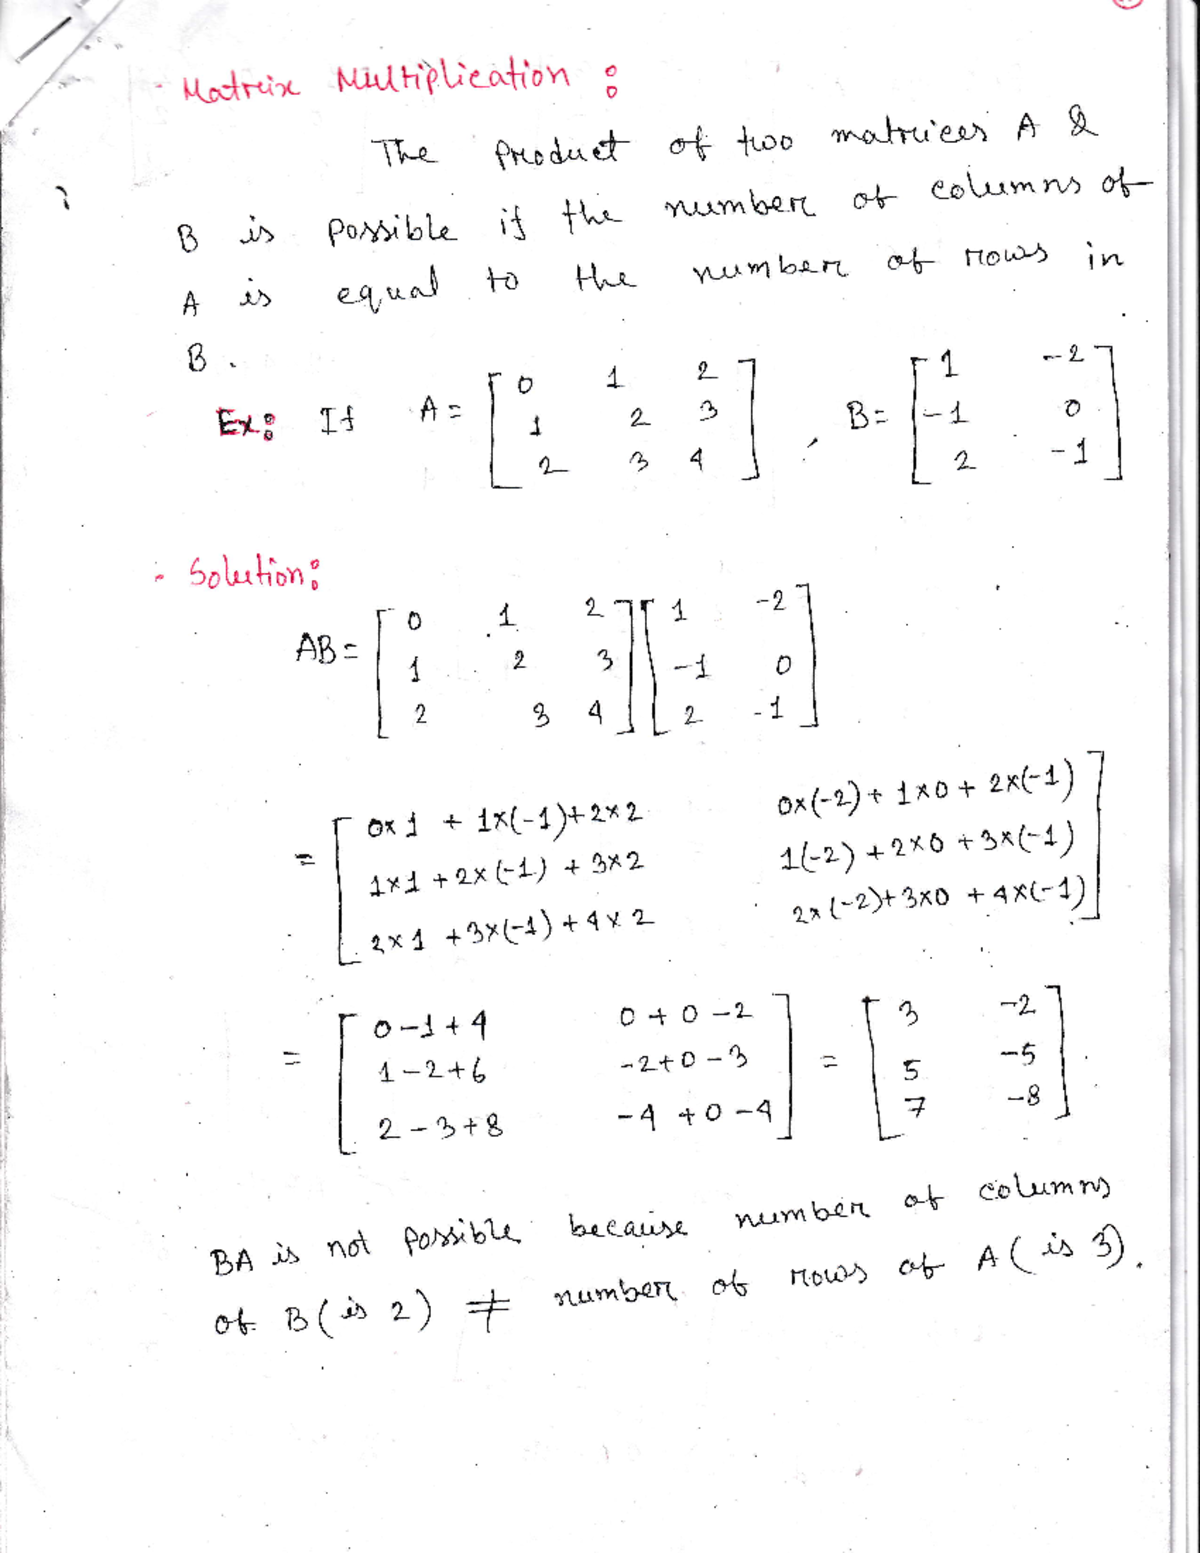 Matrix Multiplication :
The product of two matrices A &
B is possible if the number of columns of
A is equal to the number of rows in
B.
Ex: If A = [ 0 1 2 ; 1 2 3 ; 2 3 4 ] , B = [ 1 -2 ; -1 0 ; 2 -1 ]
Solution:
AB = [ 0 1 2 ; 1 2 3 ; 2 3 4 ] [ 1 -2 ; -1 0 ; 2 -1 ]
= [ 0×1 + 1×(-1)+2×2 0×(-2)+ 1×0 + 2×(-1)
1×1 + 2×(-1) + 3×2 1(-2) + 2×0 + 3×(-1)
2×1 + 3×(-1) + 4×2 2×(-2)+ 3×0 + 4×(-1) ]
= [ 0-1+4 0+0-2 ; 1-2+6 -2+0-3 ; 2-3+8 -4+0-4 ] = [ 3 -2 ; 5 -5 ; 7 -8 ] .
BA is not possible because number of columns
of B (is 2) ≠ number of rows of A (is 3).